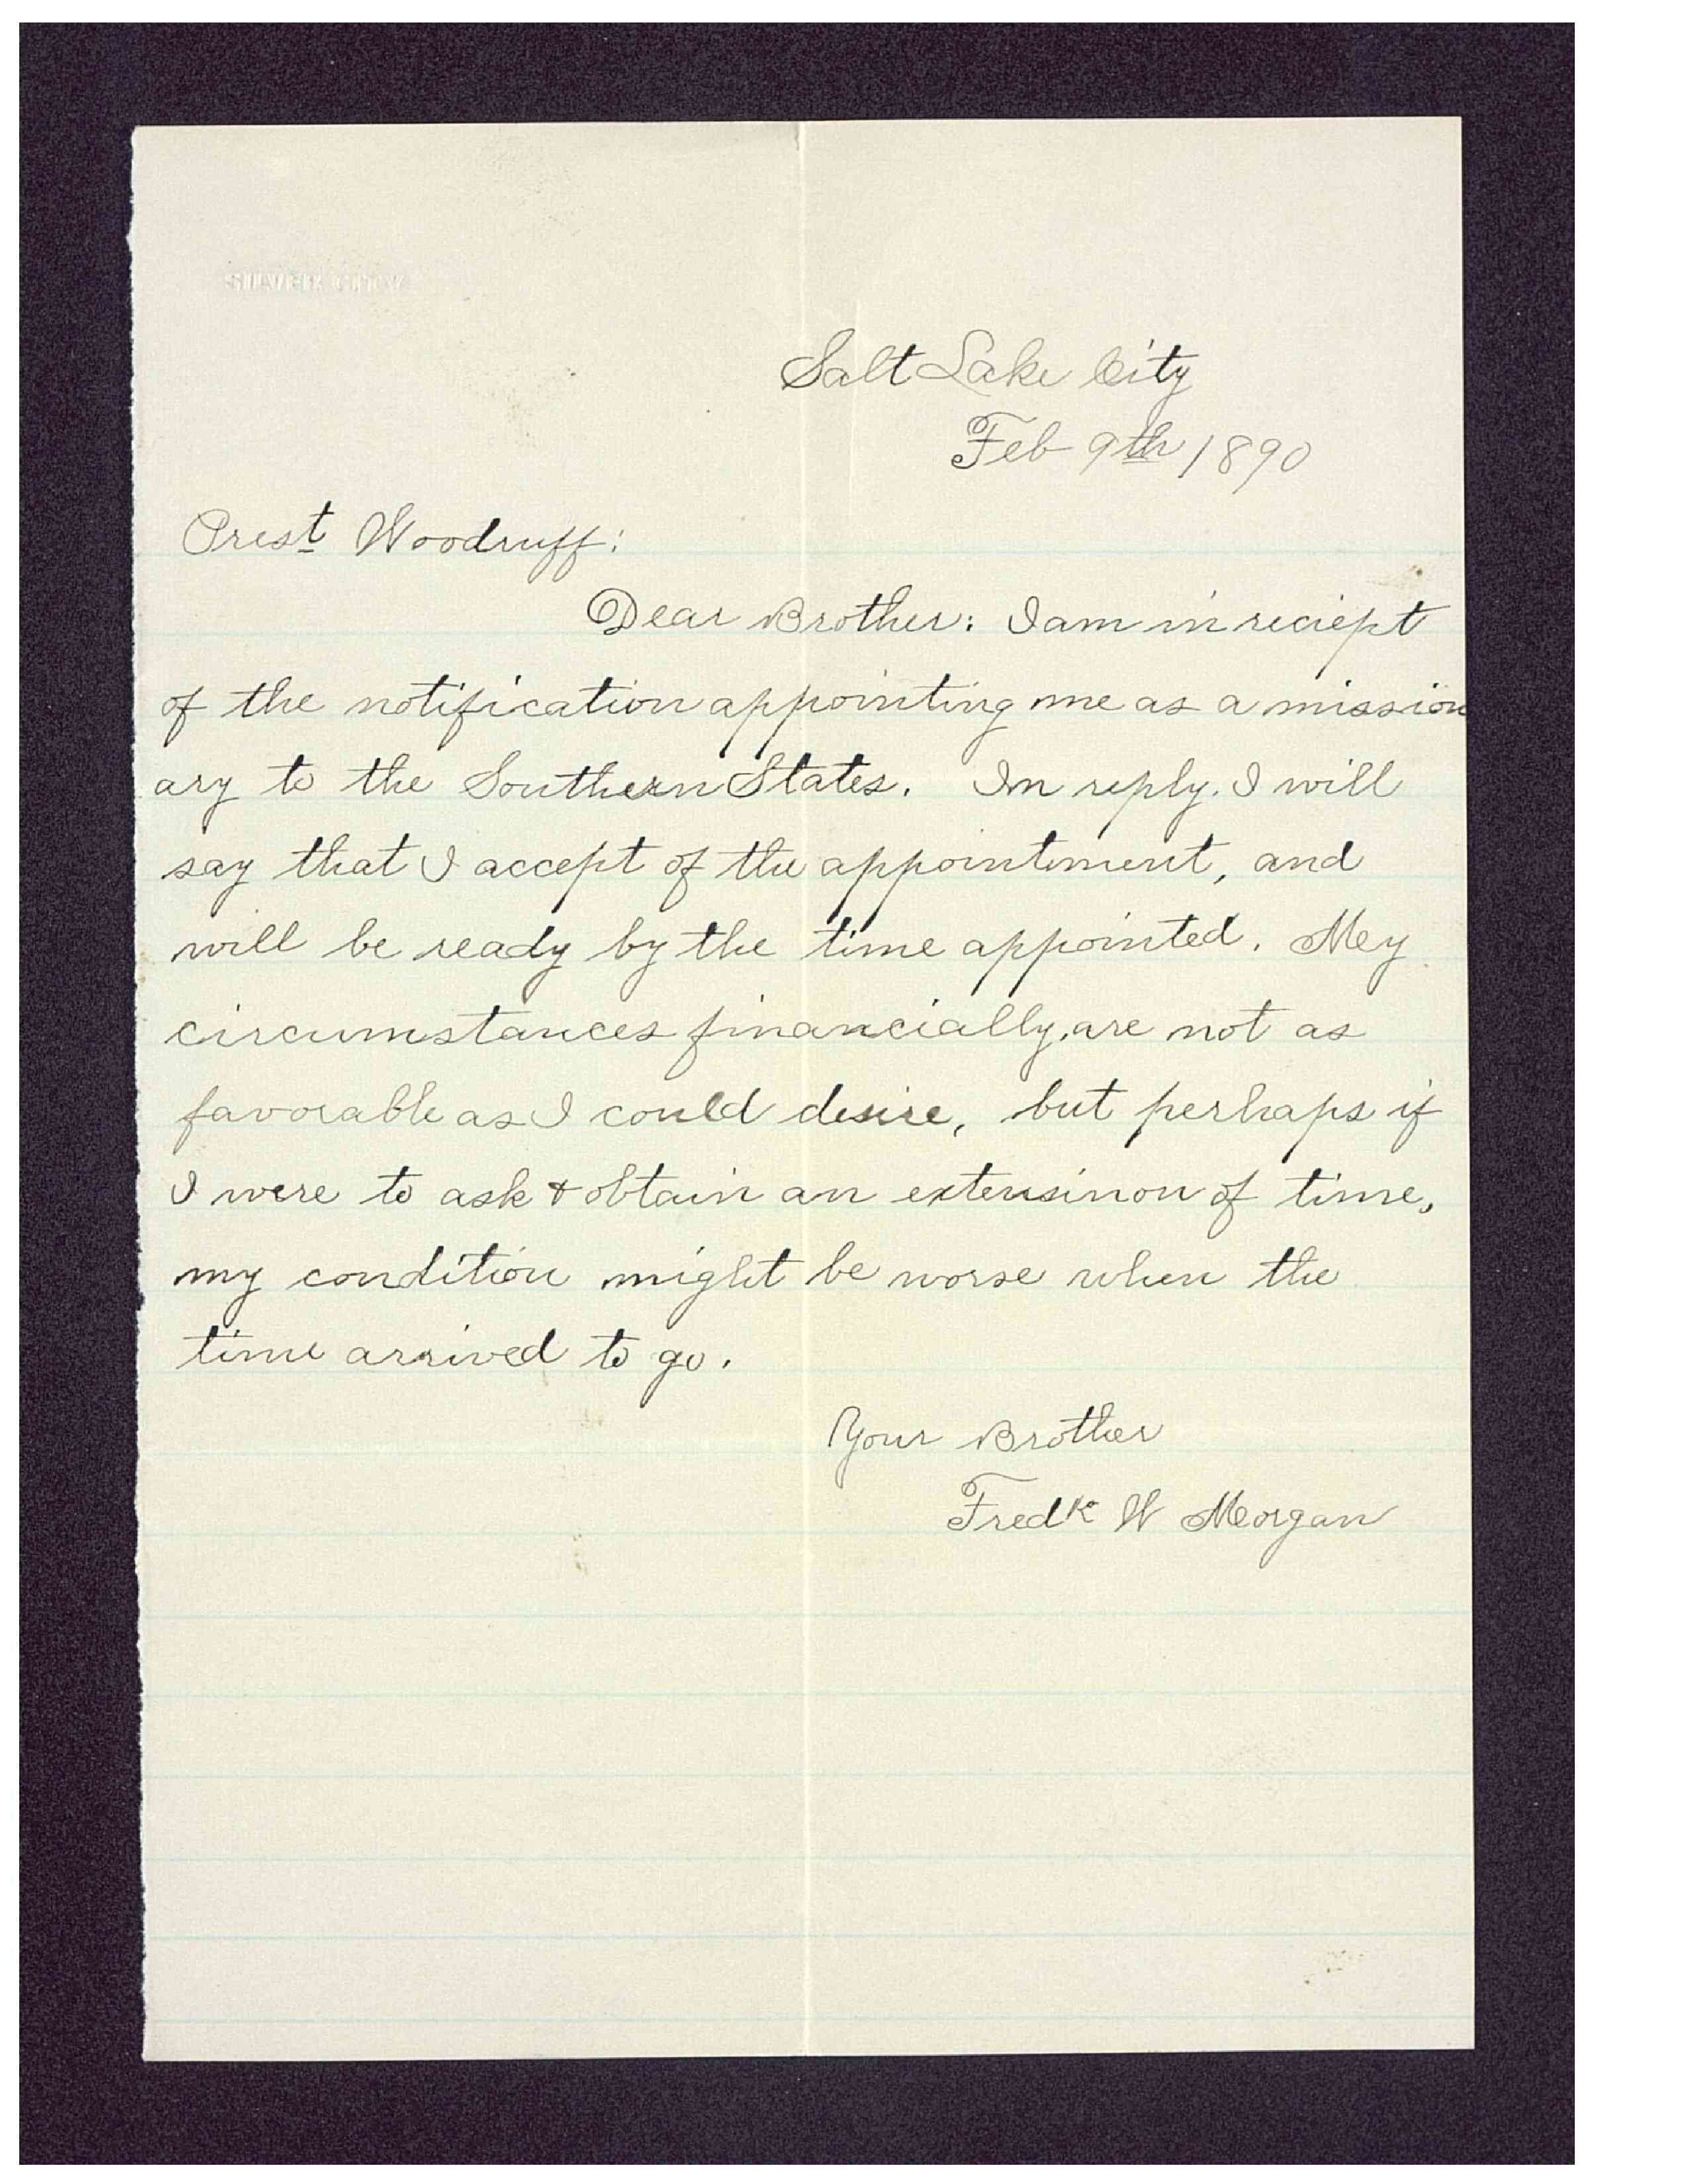 SILVER CITY
Salt Lake City
Feb 9th 1890
Prest Woodruff:
Dear Brother: I am in reciept
of the notification appointing me as a mission
ary to the Southern States. In reply. I will
say that I accept of the appointment, and
will be ready by the time appointed. My
circumstances financially, are not as
favorable as I could desire, but perhaps if
I were to ask & obtain an extensinon of time,
my condition might be worse when the
time arrived to go.
Your Brother
Fredk W Morgan